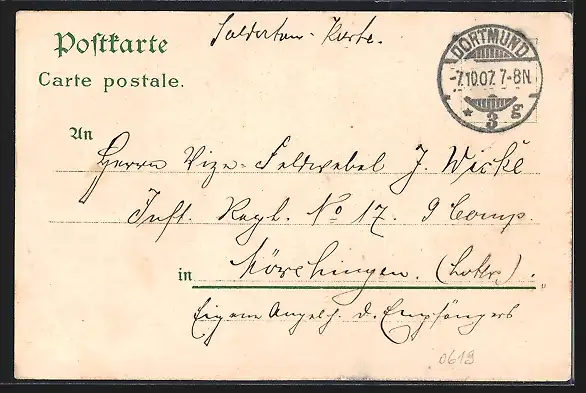 Postkarte
Carte postale.
Soldaten-Karte.
DORTMUND
-7.10.07. 7-8N.
* 3 g
An
Herrn Vize-Feldwebel J. Wicke
Inft. Regt. No 17. 9 Comp.
in Mörchingen. (Lothr.).
Eigene Angelgh. d. Empfängers
0619